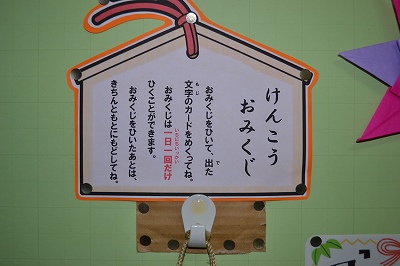 けんこう
おみくじ
おみくじをひいて、出た
文字のカードをめくってね。
おみくじは一日一回だけ
ひくことができます。
おみくじをひいたあとは、
きちんともとにもどしてね。